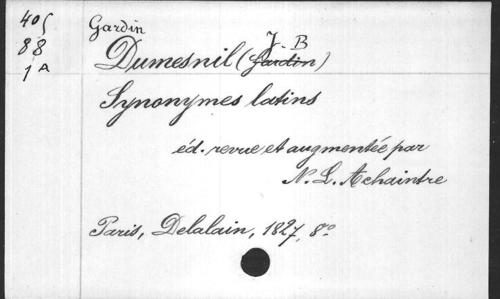 405
88
1A
Gardin
Dumesnil (J. B Gardin)
Synonymes latins
éd. revue et augmentée par
N. L. Achaintre
Paris, Delalain, 1827, 8°